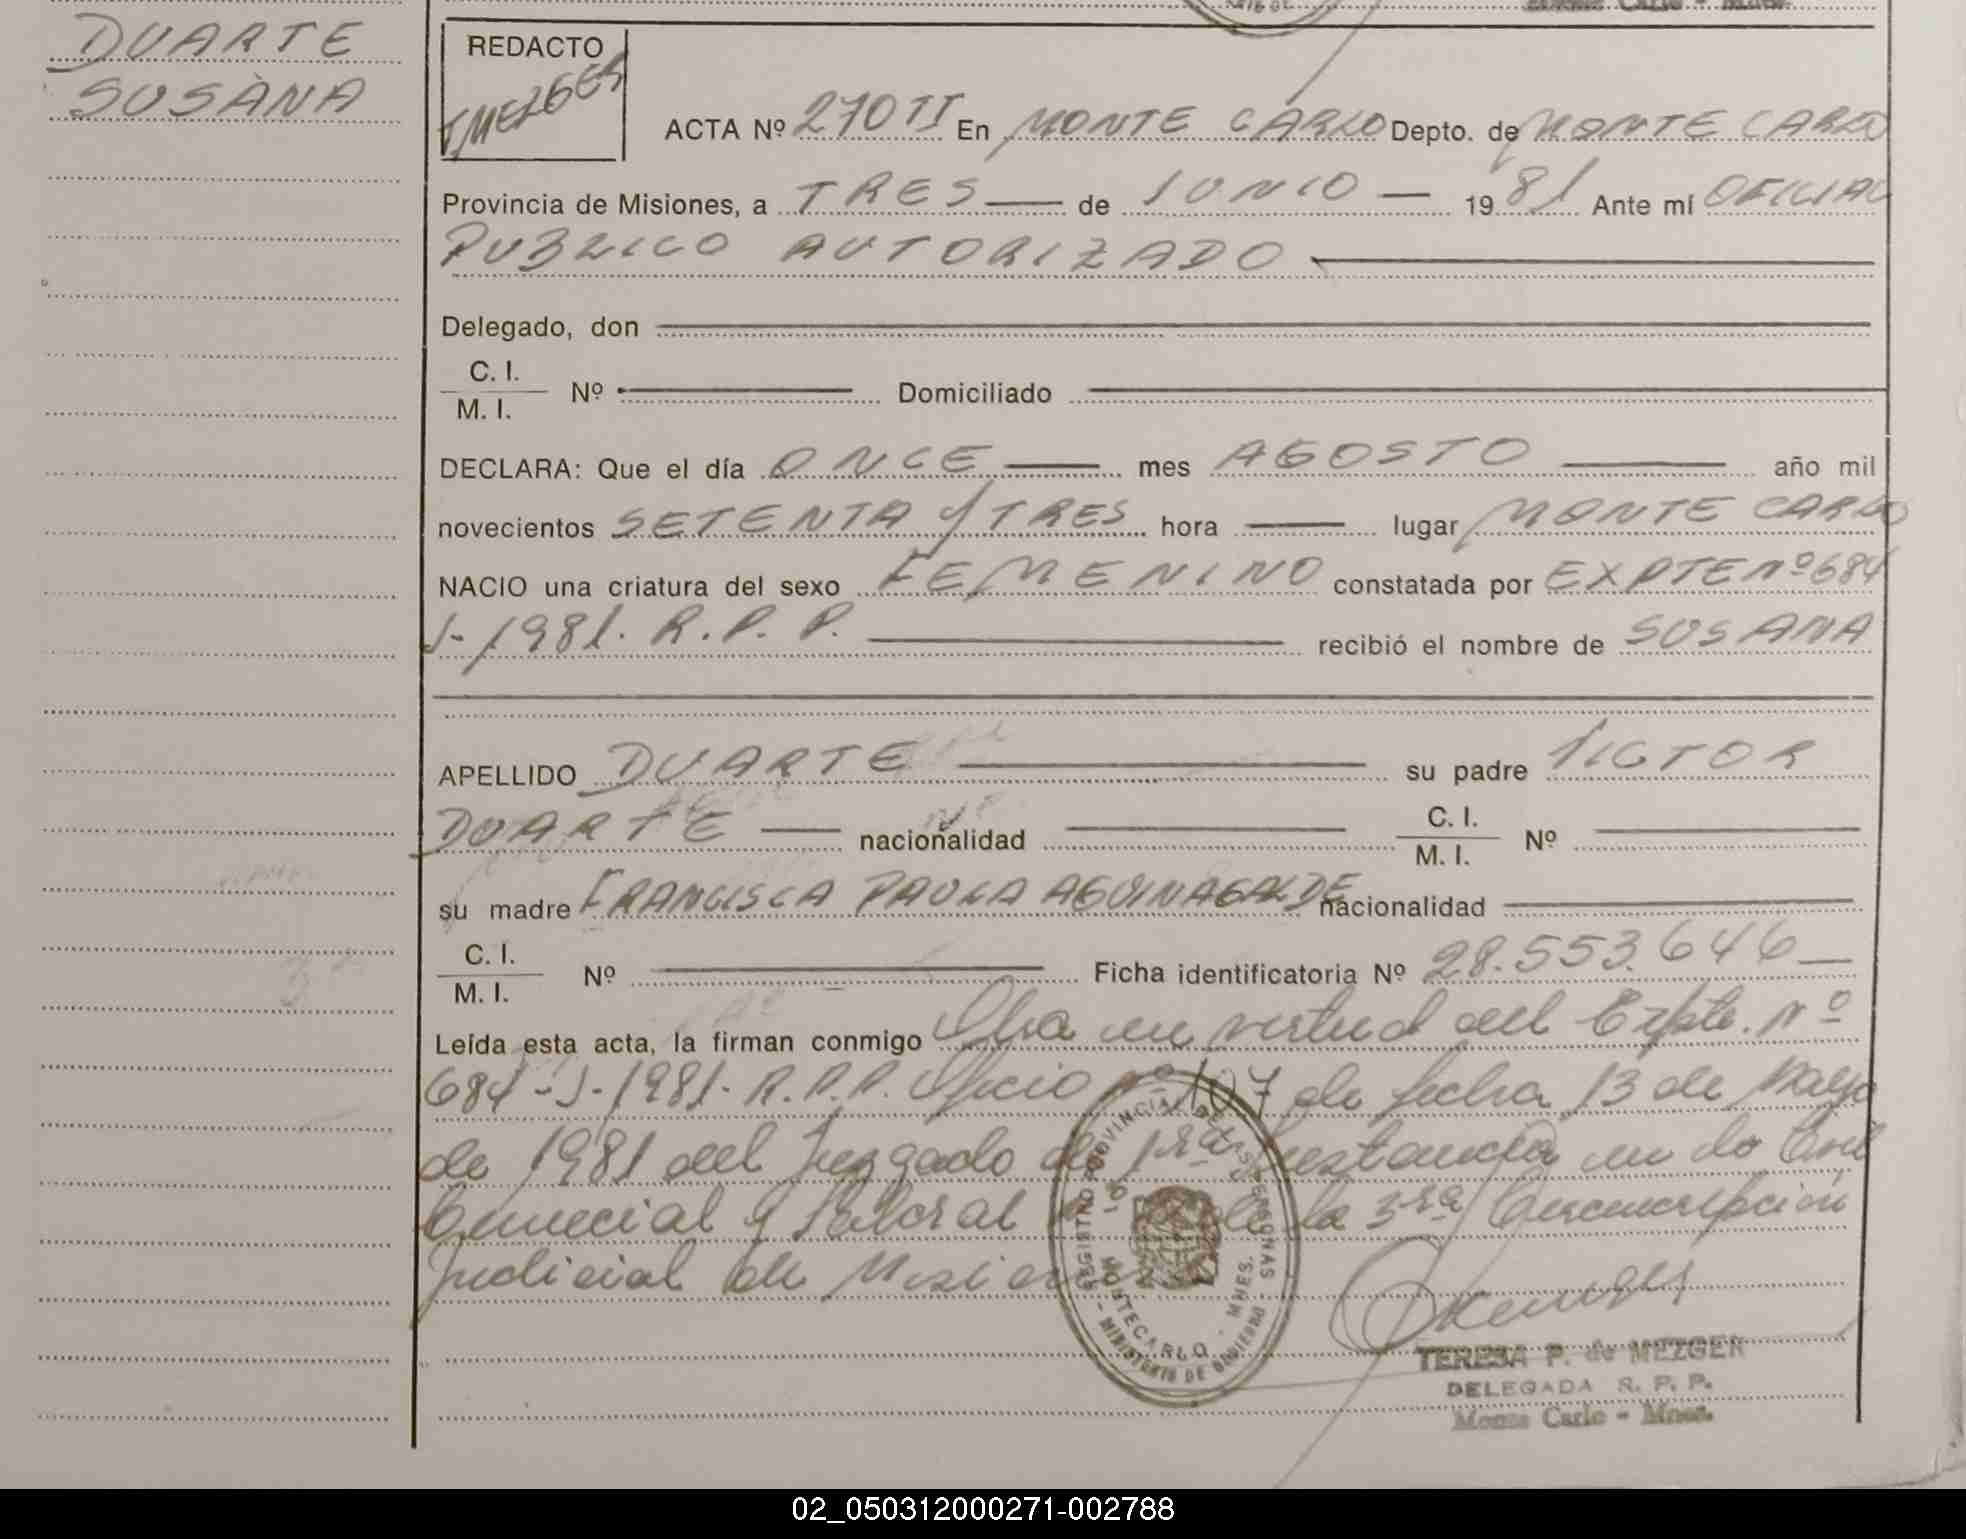 DUARTE
SUSANA
REDACTO
TMEZGER
ACTA Nº 270 TI En MONTE CARLO Depto. de MONTE CARLO
Provincia de Misiones, a TRES de JUNIO 1981 Ante mí OFICIAL
PUBLICO AUTORIZADO
Delegado, don
C. I.
M. I. Nº Domiciliado
DECLARA: Que el día ONCE mes AGOSTO año mil
novecientos SETENTA Y TRES hora lugar MONTE CARLO
NACIO una criatura del sexo FEMENINO constatada por EXPTE Nº 684
J-1981. R. P. P. recibió el nombre de SUSANA
APELLIDO DUARTE su padre VICTOR
DUARTE nacionalidad C. I.
M. I. Nº
su madre FRANCISCA PAULA AGUINAGALDE nacionalidad
C. I.
M. I. Nº Ficha identificatoria Nº 28.553.646
Leída esta acta, la firman conmigo en virtud del Expte. Nº
684-J-1981-R.P.P. Oficio nº 107 de fecha 13 de Mayo
de 1981 del Juzgado de 1ra Instancia en lo Civil
Comercial y Laboral Nº de la 3ra Circunscripción
Judicial de Misiones
REGISTRO PROVINCIAL DE LAS PERSONAS
MONTECARLO - MNES.
- MINISTERIO DE GOBIERNO
TERESA P. de MEZGER
DELEGADA R. P. P.
Monte Carlo - Mnes.
02_050312000271-002788